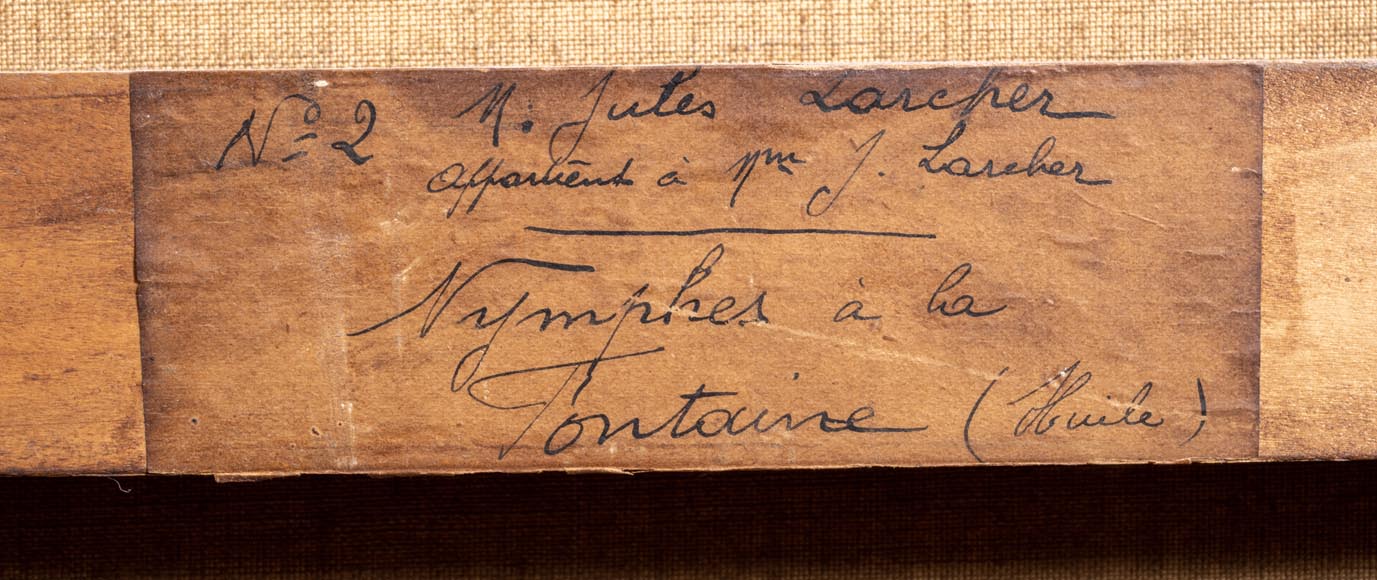 No 2 M. Jules Larcher
appartient à Mme J. Larcher
Nymphes à la
Fontaine (Huile)